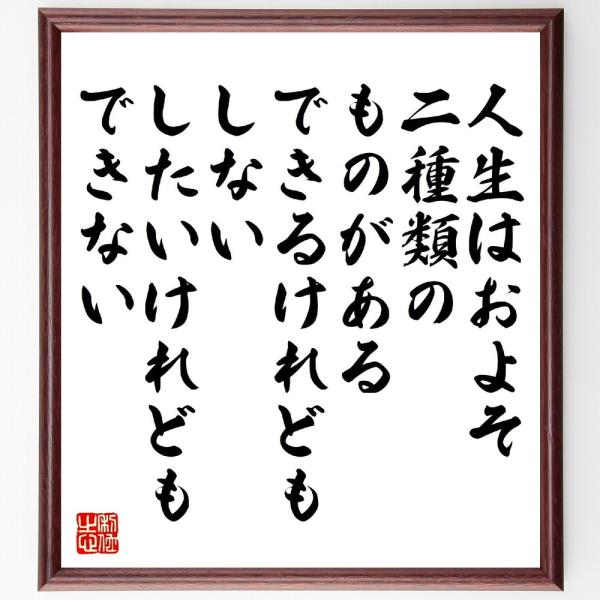 人生はおよそ
二種類の
ものがある
できるけれども
しない
したいけれども
できない